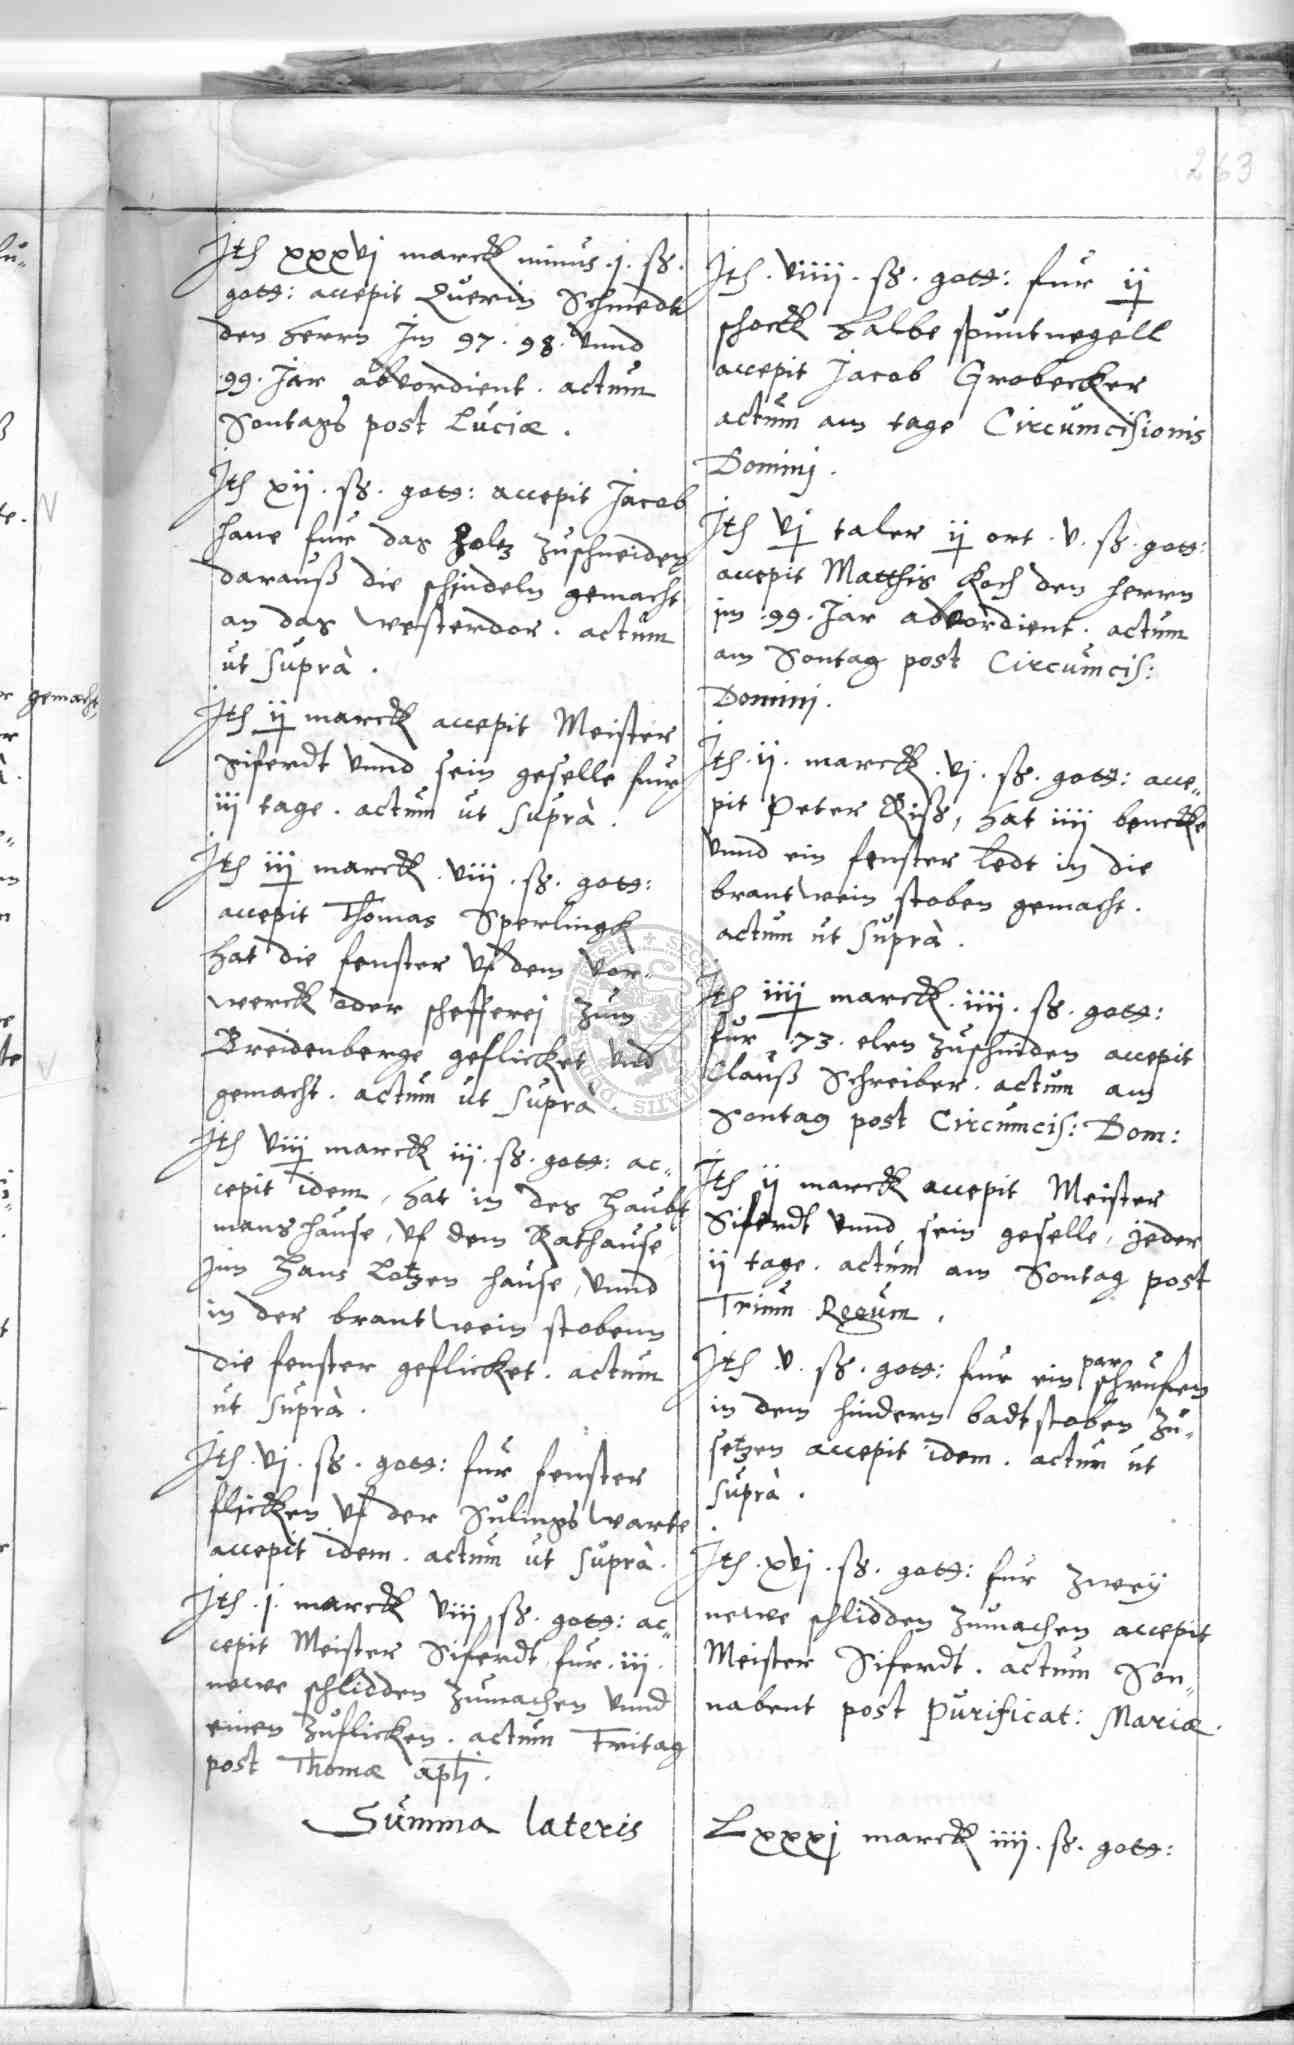 263
Jtē xxxvj marck minus .j. sß.
gotts: accepit Querin Schmedt
den herrn Jm 97. 98. vnnd
.99. Jar abvordient. actum
Sontags post Luciæ.
Jtē xij. sß. gotts: accepit Jacob
haue fur das Holtz zuschneiden
darauß die schindeln gemacht
an das westerdor. actum
ut suprà.
Jtē ij marck accepit Meister
Siferdt vnnd sein geselle fur
iij tage. actum ut suprà.
Jtē iij marck .viij. sß. gotts:
accepit Thomas Sperlingk
hat die fenster vf dem vor„
werck oder schefferej zum
Breidenberge geflicket vnd
gemacht. actum ut suprà.
Jtē viij marck iij. sß. gotts: ac„
cepit idem, hat in des Haubt
mans hause, vf dem Rathause
Jm Hans Lotzen hause, vnnd
in der brantwein stobenn
die fenster geflicket. actum
ut suprà.
Jtē .vj. sß. gotts: fur fenster
flicken vf der Sulings warte
accepit idem. actum ut suprà.
Jtē .j. marck viij sß. gotts: ac„
cepit Meister Siferdt fur .iij.
newe schlidden zumachen vnnd
einen zuflicken. actum Fritag
post Thomæ apli.
Summa lateris
Jtē .viiij. sß. gotts: fur ij
schock halbe spuntnegell
accepit Jacob Grobecker
actum am tage Circumcisionis
Dominj.
Jtē vj taler ij ort .v. sß. gotts:
accepit Matthis Koch den herrn
jm .99. Jar abvordient. actum
am Sontag post Circumcis:
Dominj.
Jtē .ij. marck .vj. sß. gotts: acce„
pit Peter Kiß, hat iiij bencke
vnnd ein fenster ledt in die
brantwein stoben gemacht.
actum ut suprà.
Jtē iiij marck .iiij. sß. gotts:
fur .73. elen zuschniden accepit
Clauß Schreiber. actum am
Sontag post Circumcis: Dom:
Jtē ij marck accepit Meister
Siferdt vnnd sein geselle, jeder
ij tage. actum am Sontag post
Trium Regum.
Jtē .v. sß. gotts: fur ein par schrufen
in dem hindern badtstoben zu„
setzen accepit idem. actum ut
suprà.
Jtē .xvj. sß. gotts: fur zweÿ
newe schlidden zumachen accepit
Meister Siferdt. actum Son„
nabent post Purificat: Mariæ.
Lxxxj marck iiij. sß. gotts: